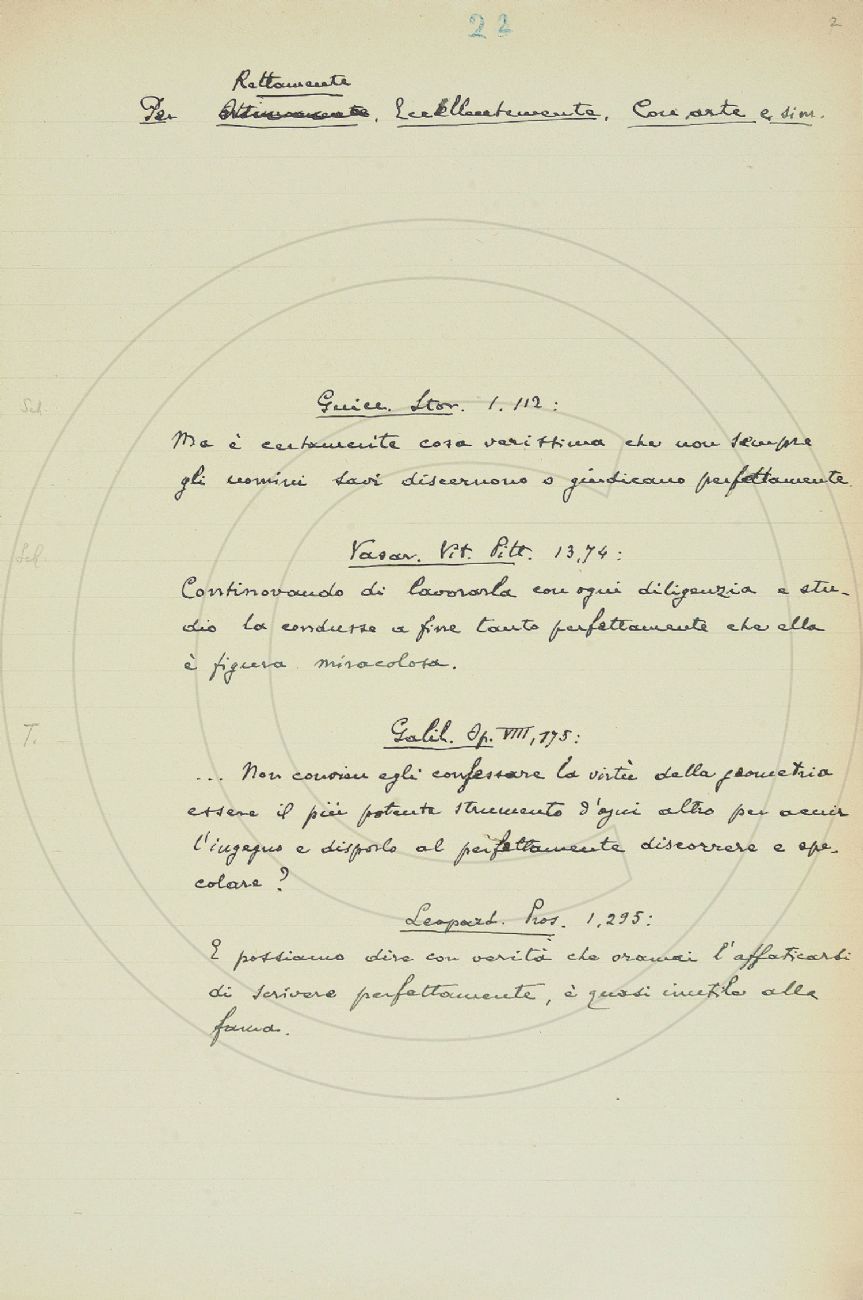 22
2
Rettamente
Per Ottimamente, Eccellentemente, Con arte e sim.
Sch.
Guicc. Stor. 1. 112:
Ma è certamente cosa verissima che non sempre
gli uomini savi discernono o giudicano perfettamente.
Sch.
Vasar. Vit. Pitt. 13,74:
Continovando di lavorarla con ogni diligenzia e stu-
dio la condusse a fine tanto perfettamente che ella
è figura miracolosa.
T.
Galil. Op. VIII, 175:
... Non convien egli confessare la virtù della geometria
essere il più potente strumento d'ogni altro per acuir
l'ingegno e disporlo al perfettamente discorrere e spe-
colare?
Leopard. Pros. 1,295:
E possiamo dire con verità che oramai l'affaticarsi
di scrivere perfettamente, è quasi inutile alla
fama.